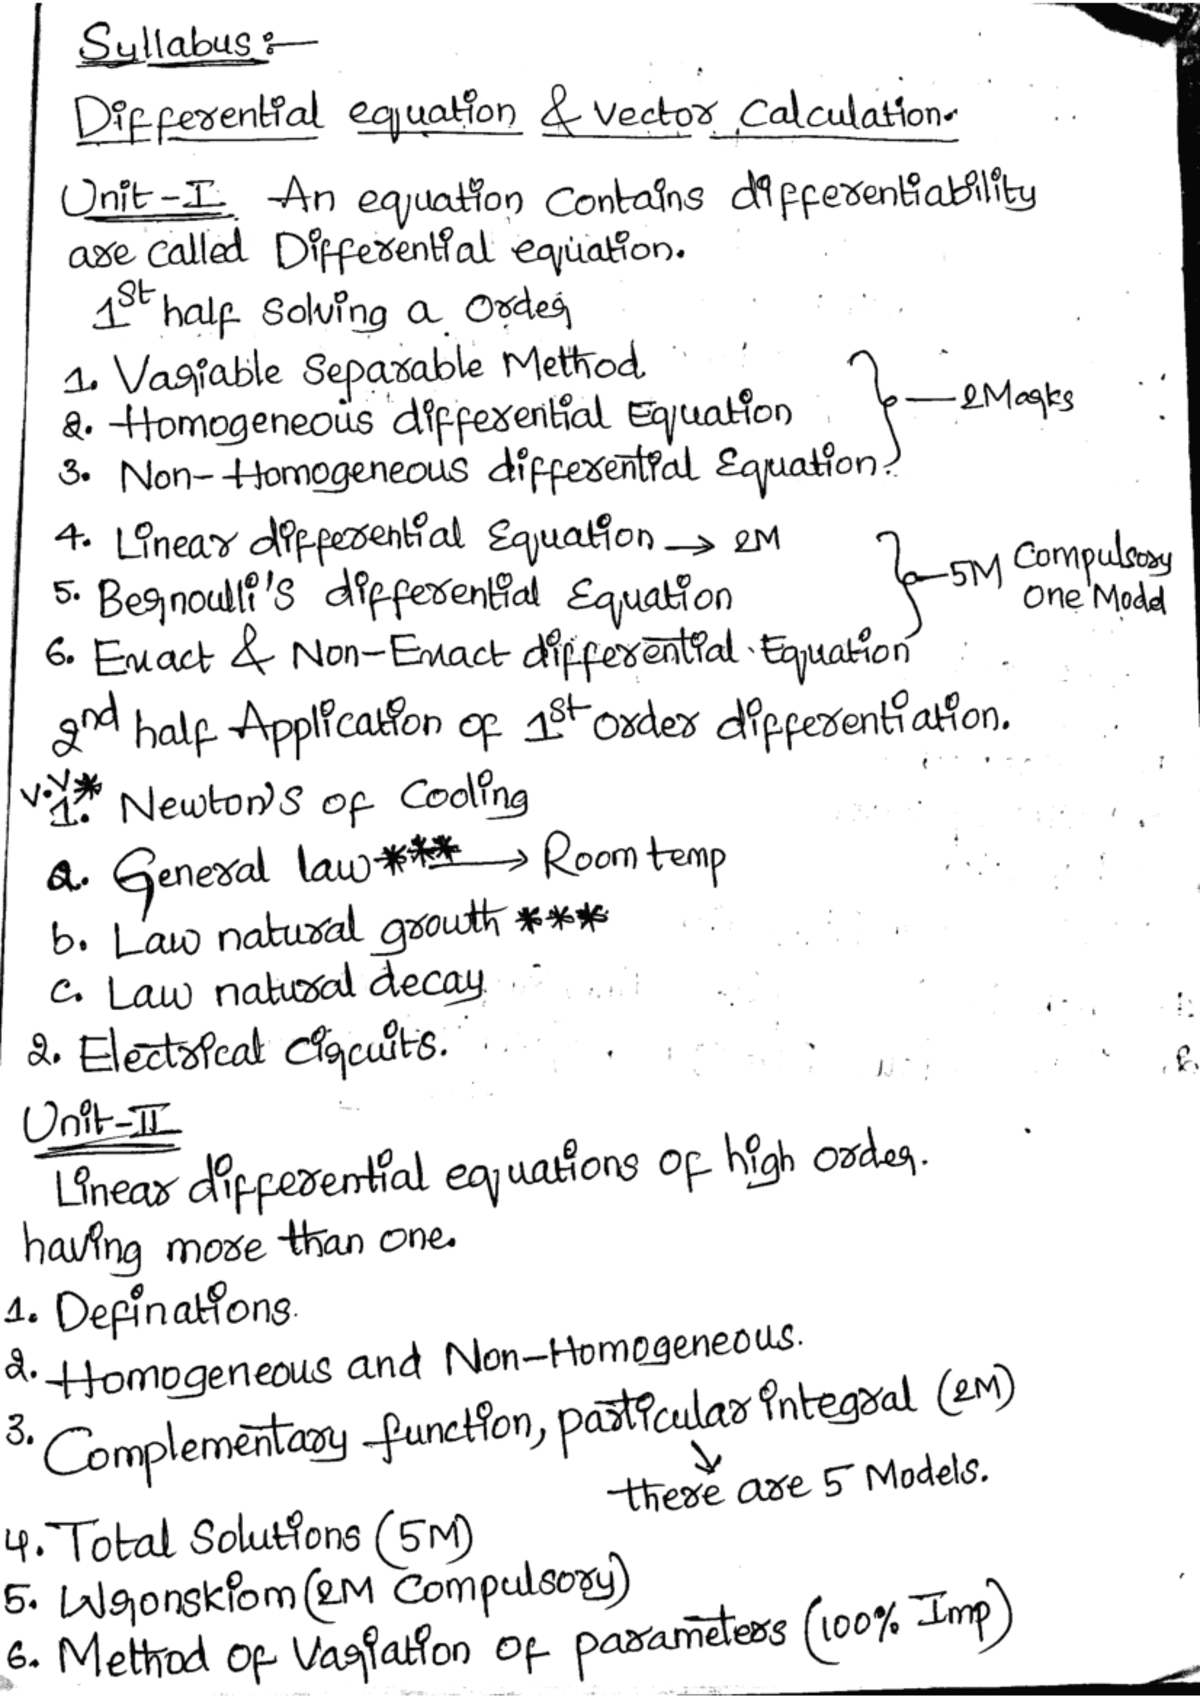 Syllabus:-
Differential equation & Vector Calculation.
Unit-I An equation Contains differentiability
are called Differential equation.
1st half Solving a Order
1. Variable Separable Method
2. Homogeneous differential Equation
3. Non-Homogeneous differential Equation.
} - 2Marks
4. Linear differential Equation → 2M
5. Bernoulli's differential Equation
6. Exact & Non-Exact differential Equation
} - 5M Compulsory
One Model
2nd half Application of 1st order differentiation.
V.V*
1. Newton's of Cooling
a. General law *** → Room temp
b. Law natural growth ***
c. Law natural decay
2. Electrical Circuits.
Unit-II
Linear differential equations of high order.
having more than one.
1. Definations.
2. Homogeneous and Non-Homogeneous.
3. Complementary function, particular integral (2M)
↓
there are 5 Models.
4. Total Solutions (5M)
5. Wronskiom (2M Compulsory)
6. Method of Variation of parameters (100% Imp)